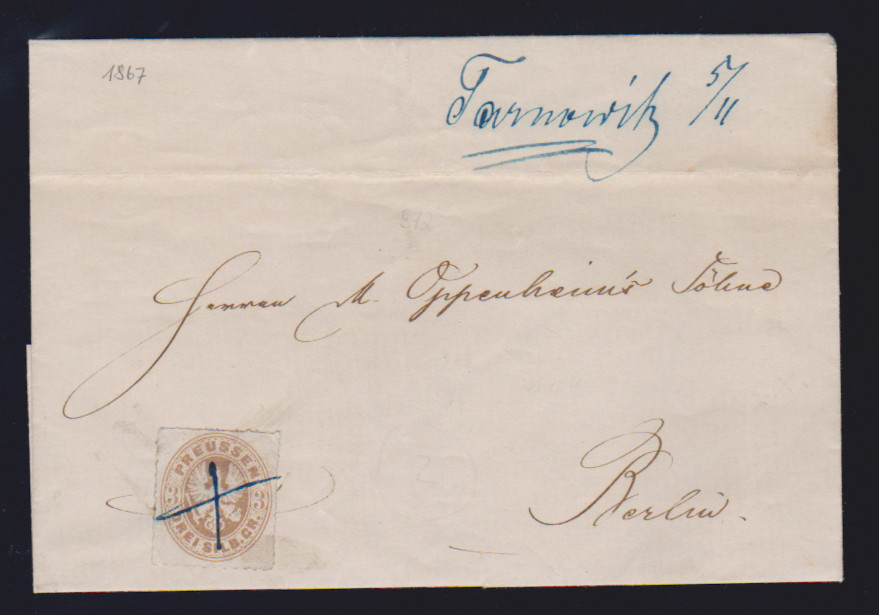 1867
Tarnowitz 5/11
Herren M. Oppenheim's Söhne
PREUSSEN
3 3
DREI SILB.GR.
Berlin.